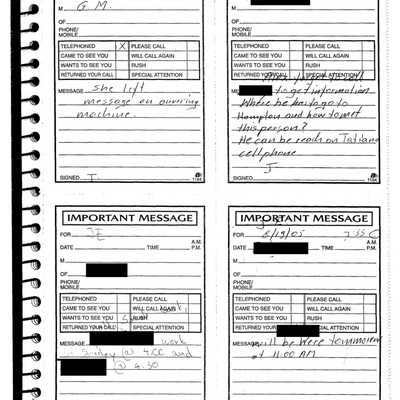 M G.M.
OF
PHONE/
MOBILE
TELEPHONED X PLEASE CALL
CAME TO SEE YOU WILL CALL AGAIN
WANTS TO SEE YOU RUSH
RETURNED YOUR CALL SPECIAL ATTENTION
MESSAGE She left
message on
machine.
SIGNED J. 1184
OF
PHONE/
MOBILE
TELEPHONED PLEASE CALL
CAME TO SEE YOU WILL CALL AGAIN
WANTS TO SEE YOU RUSH
RETURNED YOUR CALL SPECIAL ATTENTION
MESSAGE to get information
Where he has to go to
and how to met
this person?
He can be reach on Tatiana
cell phone
J
SIGNED 1184
IMPORTANT MESSAGE
FOR JE
DATE TIME A.M. P.M.
M
OF
PHONE/
MOBILE
TELEPHONED PLEASE CALL
CAME TO SEE YOU WILL CALL AGAIN
WANTS TO SEE YOU RUSH
RETURNED YOUR CALL SPECIAL ATTENTION
MESSAGE work
Sunday @ 4:00 and
@ 4:30
IMPORTANT MESSAGE
FOR 8/19/05
DATE TIME A.M. P.M.
M
OF
PHONE/
MOBILE
TELEPHONED PLEASE CALL
CAME TO SEE YOU WILL CALL AGAIN
WANTS TO SEE YOU RUSH
RETURNED YOUR CALL SPECIAL ATTENTION
MESSAGE will be here tommorow
at 11:00 AM